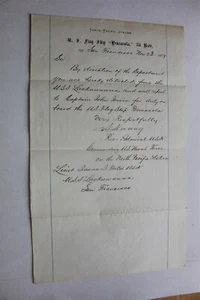 North Pacific Station
U. S. Flag Ship "Pensacola," 2d Rate,
San Francisco Nov 23
Sir
By direction of the Department
you are hereby detached from the
U.S.S. Lackawanna, and will report
to Captain John Irwin for duty on
board the U.S. Flag Ship Pensacola
Very Respectfully
Rear Admiral U.S.N.
Commanding U.S. Naval Force
on the North Pacific Station
Lieut
U.S.S. Lackawanna
San Francisco